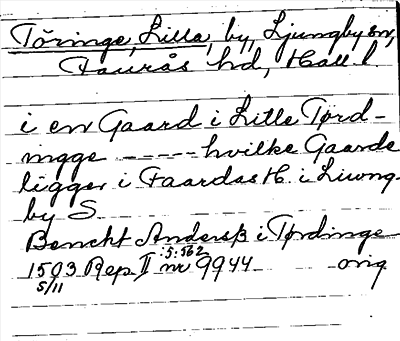 Töringe, Lilla, by, Ljungby sn,
Faurås hd, Hall. l
i en Gaard i Litle Tørd-
ingge ----- hvilke Gaarde
ligger i Faardas H. i Liung-
by S
Bencht Anderss i Tørdinge
:5:562
1503 Rep. II nr 9944 orig
5/11